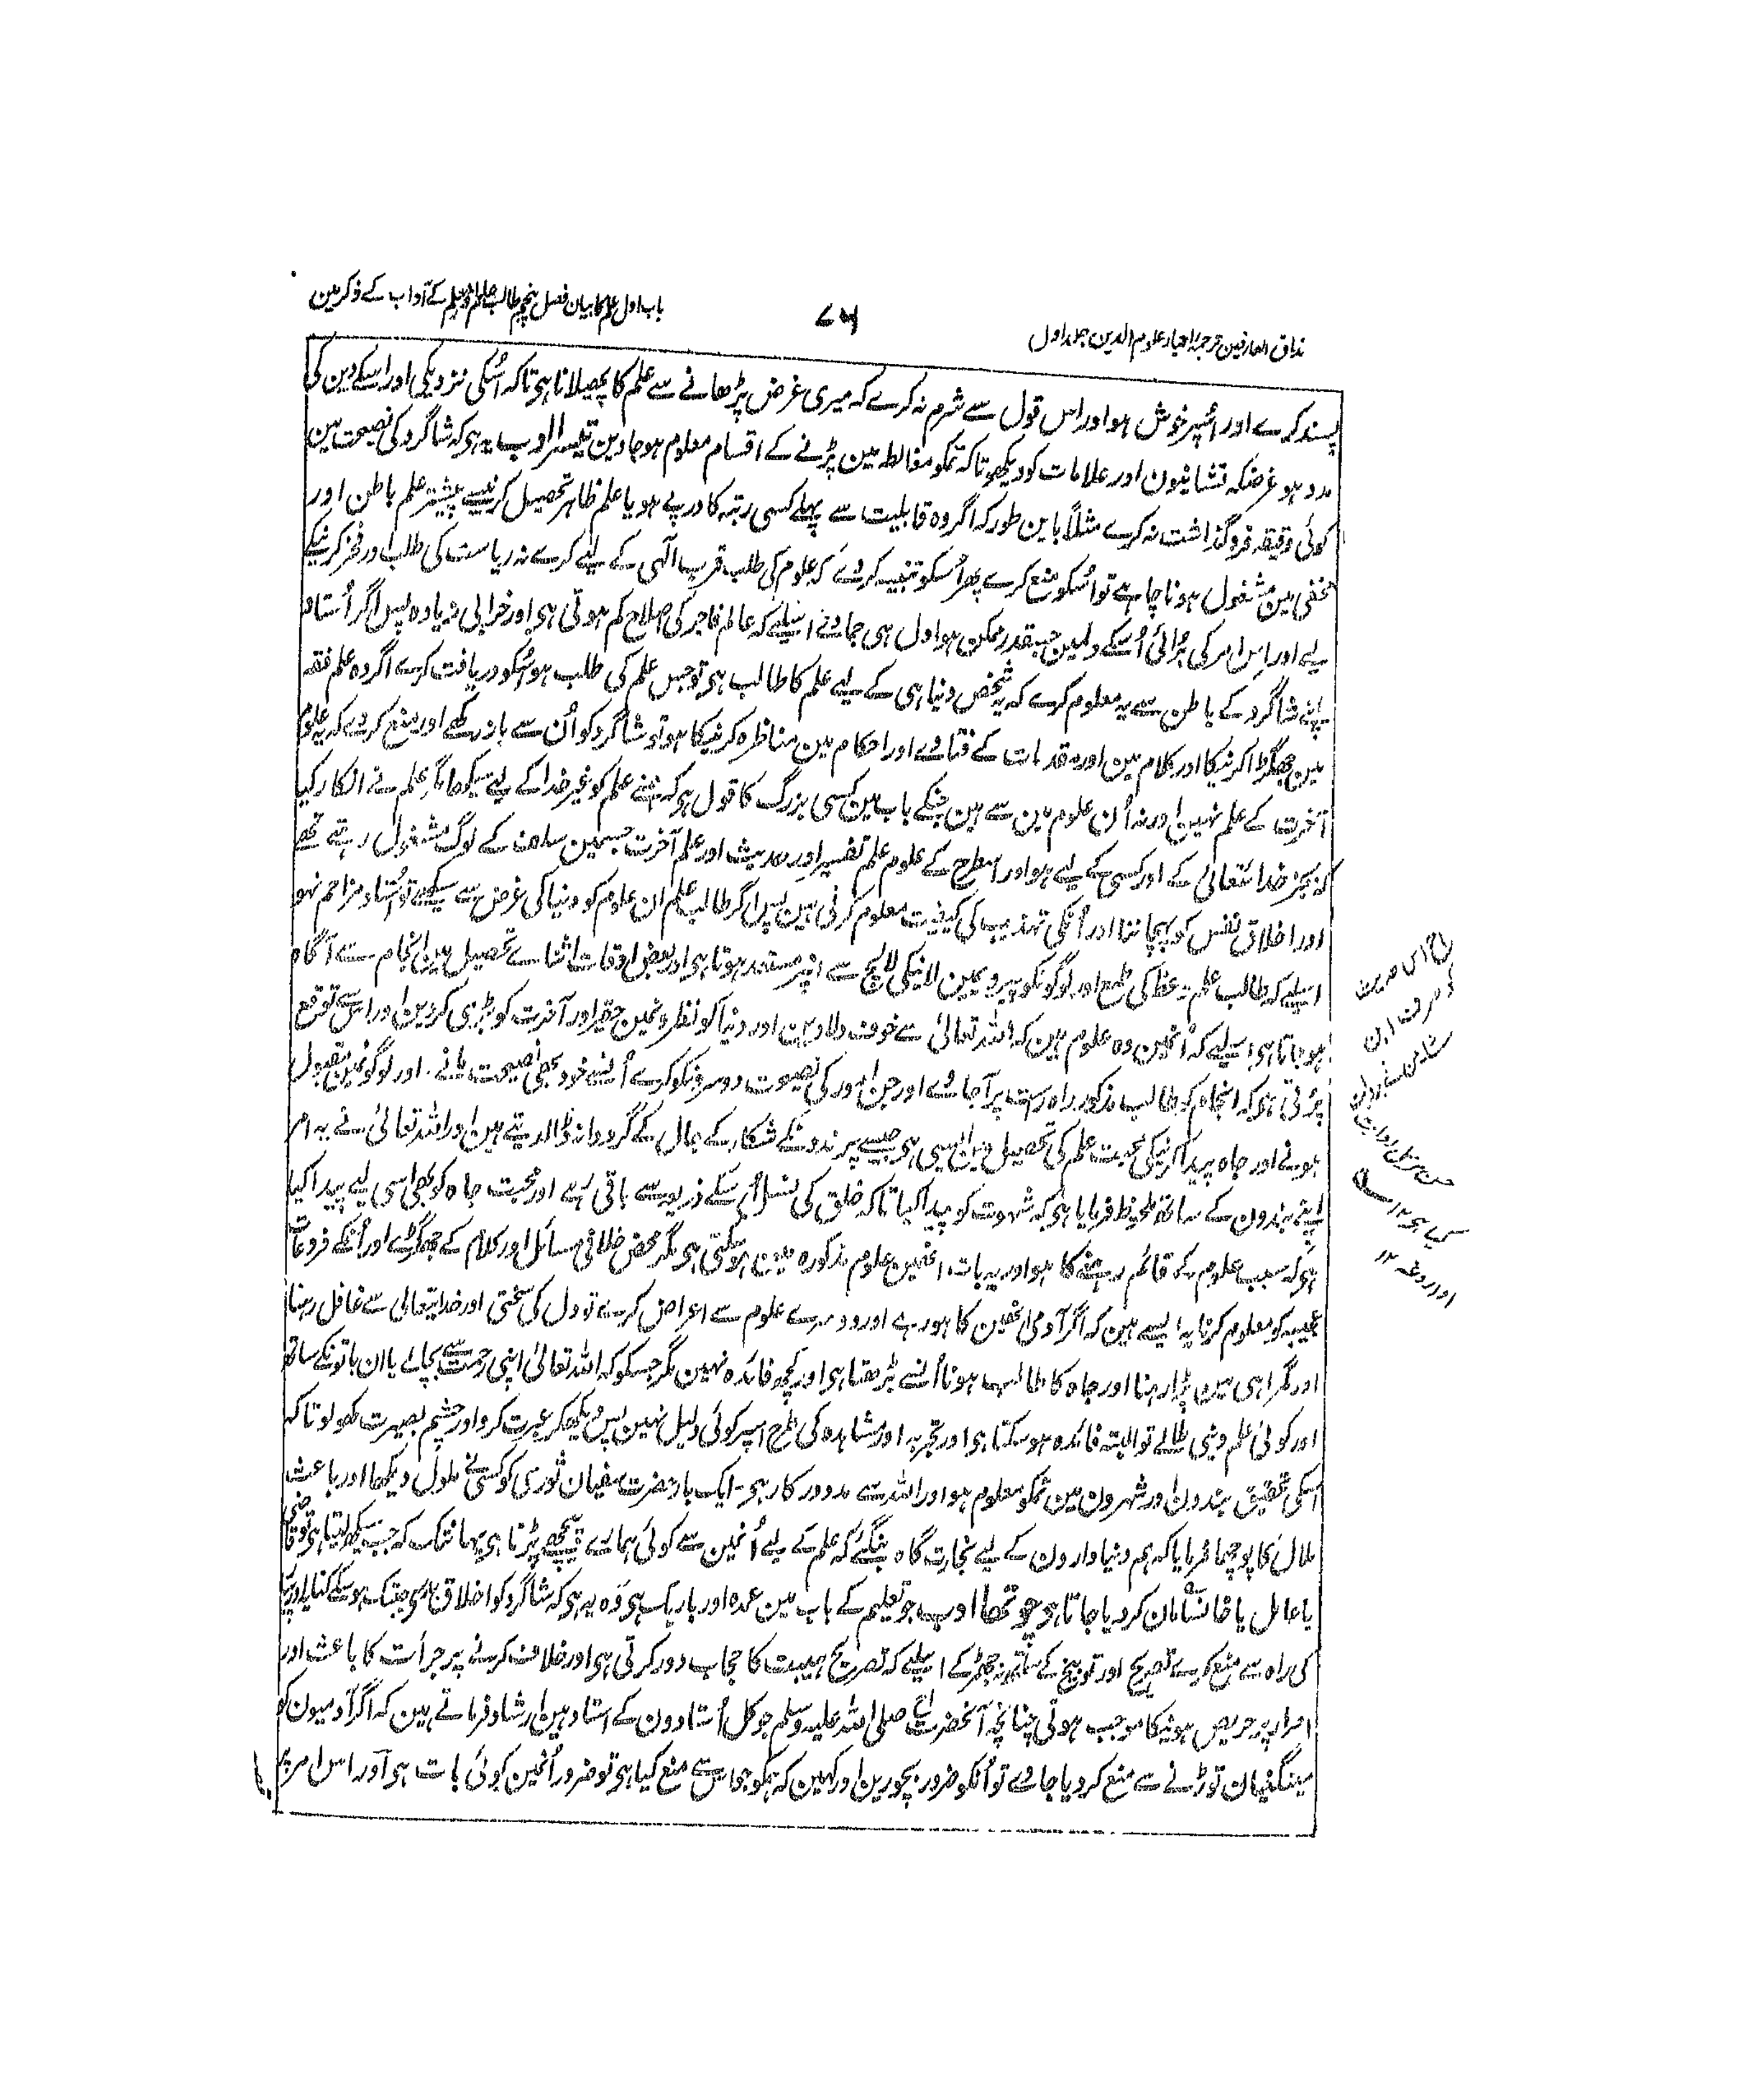 مذاق العارفین ترجمہ احیاء علوم الدین جلد اول
۷۴
باب اول علم کا بیان فصل پنجم طالب علم و معلم کے آداب کے ذکر مین
پسند کرے اور اُسپر خوش ہو اور اس قول سے شرم نہ کرے کہ میری غرض پڑھانے سے علم کا پھیلانا ہی تاکہ اُسکی نزدیکی اور اسکے دین کی
مدد ہو غرضکہ نشانیون اور علامات کو دیکھو تاکہ تمکو مغالطہ مین پڑنے کے اقسام معلوم ہو جاوین تیسرا ادب یہ ہی کہ شاگرد کی نصیحت مین
کوئی دقیقہ فروگذاشت نہ کرے مثلاً باین طور کہ اگر وہ قابلیت سے پہلے کسی رتبہ کا درپے ہو یا علم ظاہر تحصیل کرنیسے پیشتر علم باطن اور
مخفی مین مشغول ہونا چاہے تو اُسکو منع کرے پھر اُسکو تنبیہ کردے کہ علوم کی طلب قرب الٰہی کے لیے کرے نہ ریاست کی طلب اور فخر کرنیکے
لیے اور اِس امر کی بُرائی اُسکے دلمین جسقدر ممکن ہو اول ہی جما دے اسلیے کہ عالم فاجر کی اصلاح کم ہوتی ہی اور خرابی زیادہ پس اگر اُستاد
اپنے شاگرد کے باطن سے یہ معلوم کرے کہ یہ شخص دنیا ہی کے لیے علم کا طالب ہی تو جس علم کی طلب ہو اُسکو دریافت کرے اگر وہ علم فقہ
مین جھگڑا کرنیکا اور کلام مین اور مقدمات کے فتاوے اور احکام مین مناظرہ کرنیکا ہو تو شاگرد کو اُن سے باز رکھے اور منع کردے کہ یہ علوم
آخرت کے علم نہین اور نہ اُن علوم مین سے ہین جنکے باب مین کسی بزرگ کا قول ہی کہ ہمنے علم کو غیر خدا کے لیے سیکھا مگر علم نے انکار کیا
کہ بجز خدا تعالیٰ کے اور کسی کے لیے ہو اور اسطرح کے علوم علم تفسیر اور حدیث اور علم آخرت جسمین سلف کے لوگ مشغول رہتے تھے
اور اخلاق نفس کو پہچاننا اور اُنکی تہذیب کی کیفیت معلوم کرنی ہین پس اگر طالب علم ان علوم کو دنیا کی غرض سے سیکھے تو اُستاد مزاحم نہو
اسلیے کہ طالب علم وعظ کی طمع اور لوگونکو پیرو بنین لانیکی لالچ سے اُنپر مستعد ہوتا ہی اور بعض اوقات اثناے تحصیل مین انجام سے آگاہ
ہو جاتا ہی اسلیے کہ اُنمین وہ علوم ہین کہ اللہ تعالیٰ سے خوف دلاوین اور دنیا کو نظرونمین حقیر اور آخرت کو بڑی کرین اور اس سے توقع
پڑتی ہی کہ انجام کو طالب مذکور راہ راست پر آجاوے اور جن امور کی نصیحت دوسرونکو کرے اُنسے خود بھی نصیحت مانے۔ اور لوگونمین مقبول
ہونے اور جاہ پیدا کرنیکی محبت علم کی تحصیل مین ایسی ہی جیسے پرندونکے شکار کے جال کے گرد دانہ ڈالدیتے ہین اور اللہ تعالیٰ نے یہ امر
اپنے بندون کے ساتھ ملحوظ فرمایا ہی کہ شہوت کو پیدا کیا تاکہ خلق کی نسل اُسکے ذریعہ سے باقی رہے اور محبت جاہ کو بھی اسی لیے پیدا کیا
ہی کہ سبب علوم کے قائم رہنے کا ہو اور یہ بات انھین علوم مذکورہ مین ہوسکتی ہی مگر محض خلافی مسائل اور کلام کے جھگڑے اور اُنکے فروعات
عجیبہ کو معلوم کرنا یہ ایسے ہین کہ اگر آدمی انھین کا ہو رہے اور دوسرے علوم سے اعراض کرے تو دل کی سختی اور خدا تعالی سے غافل رہنا
اور گمراہی مین پڑا رہنا اور جاہ کا طالب ہونا اُنسے بڑھتا ہی اور کچھ فائدہ نہین مگر جسکو کہ اللہ تعالیٰ اپنی رحمت سے بچالے یا ان باتونکے ساتھ
اور کوئی علم دینی ملالے تو البتہ فائدہ ہو سکتا ہی اور تجربہ اور مشاہدہ کی طرح اسپر کوئی دلیل نہین پس دیکھکر عبرت کرو اور چشم بصیرت کھولو تاکہ
اسکی تحقیق بندون اور شہرون مین تمکو معلوم ہو اور اللہ سے مدد درکار ہی۔ ایک بار حضرت سفیان ثوری کو کسی نے ملول دیکھا اور باعث
ملال کا پوچھا فرمایا کہ ہم دنیا دارون کے لیے تجارت گاہ بنگئے کہ علم کے لیے اُنمین سے کوئی ہمارے پیچھے پڑتا ہی یہانتک کہ جب سیکھ لیتا ہی تو قاضی
یا عامل یا خانسامان کردیا جاتا ہی چوتھا ادب جو تعلیم کے باب مین عمدہ اور باریک ہی وہ یہ ہی کہ شاگرد کو اخلاق بد سے جبتک ہوسکے کنایہ اور پیار
کی راہ سے منع کرے تصریح اور توبیخ کے ساتھ نہ جھڑکے اسلیے کہ تصریح ہیبت کا حجاب دور کرتی ہی اور خلاف کرنے پر جرأت کا باعث اور
اصرار پر حریص ہونیکا موجب ہوتی چنانچہ آنحضرت صلی اللہ علیہ وسلم جو کل اُستادون کے استاد ہین ارشاد فرماتے ہین کہ اگر آدمیون کو
مینگنیان توڑنے سے منع کردیا جاوے تو اُنکو ضرور پھوڑین اور کہین کہ ہمکو جو اس سے منع کیا ہی تو ضرور اُنمین کوئی بات ہی اور اس امر پر
اس حدیث
ابن
شاہین نے
کیا ہی ۱۲
اور وغہ ۱۲